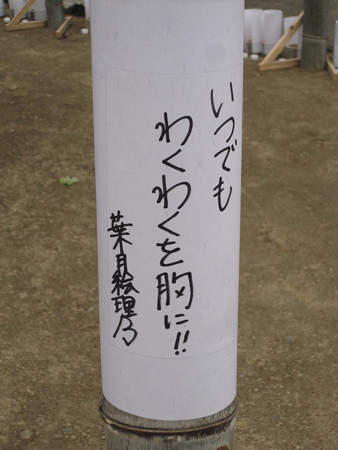 いつでも
わくわくを胸に!!
葉月絵理乃